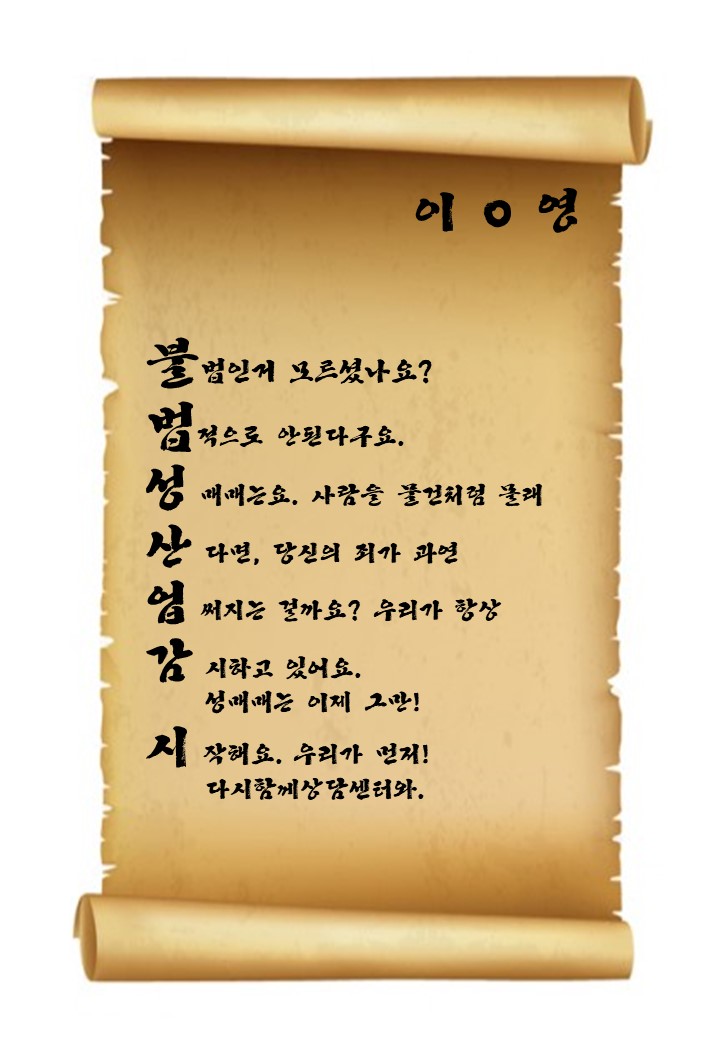 이 ㅇ 영
불법인거 모르셨나요?
법적으로 안된다구요.
성 매매는요. 사람을 물건처럼 몰래
산 다면, 당신의 죄가 과연
업 써지는 걸까요? 우리가 항상
감 시하고 있어요.
성매매는 이제 그만!
시 작해요. 우리가 먼저!
다시함께상담센터와.